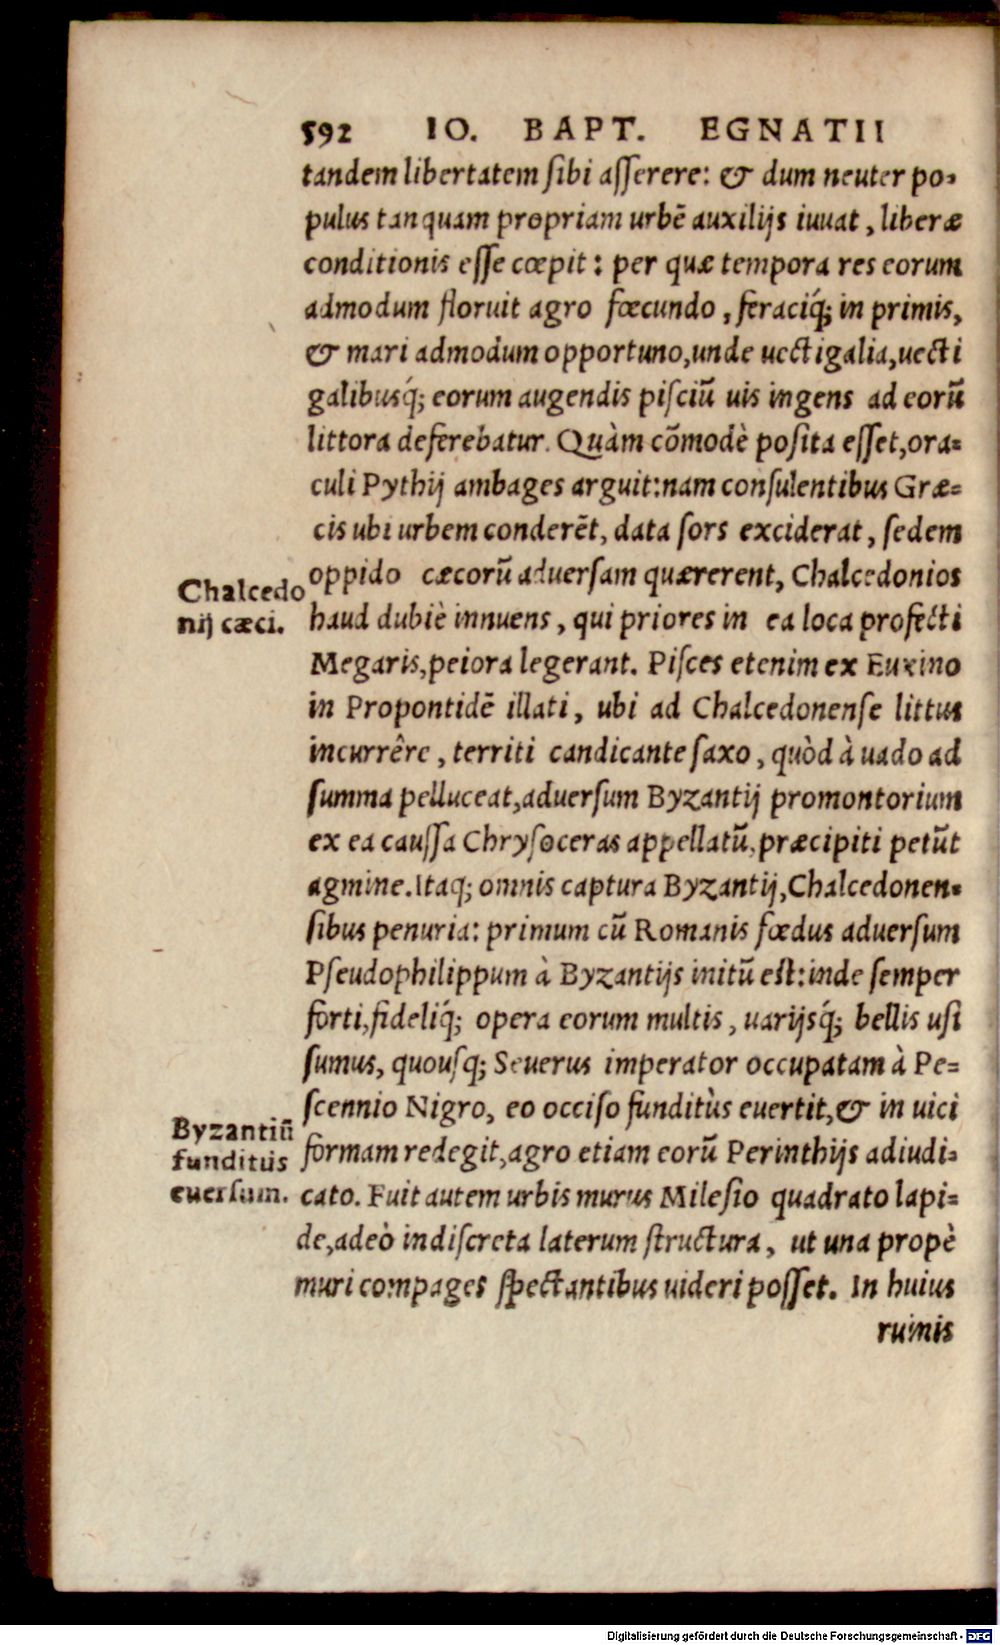 592 IO. BAPT. EGNATII
tandem libertatem ſibi aſſerere: & dum neuter po-
pulus tanquam propriam urbē auxilijs iuuat, liberæ
conditionis eſſe cœpit: per quæ tempora res eorum
admodum floruit agro fœcundo, feraciq́; in primis,
& mari admodum opportuno, unde uectigalia, uecti
galibusq́; eorum augendis piſciū uis ingens ad eorū
littora deferebatur. Quàm cōmodè poſita eſſet, ora-
culi Pythij ambages arguit: nam conſulentibus Græ-
cis ubi urbem conderēt, data ſors exciderat, ſedem
oppido cæcorū aduerſam quærerent, Chalcedonios
Chalcedo
nij cæci.
haud dubiè innuens, qui priores in ea loca profecti
Megaris, peiora legerant. Piſces etenim ex Euxino
in Propontidē illati, ubi ad Chalcedonenſe littus
incurrêre, territi candicante ſaxo, quòd à uado ad
ſumma pelluceat, aduerſum Byzantij promontorium
ex ea cauſſa Chryſoceras appellatū, præcipiti petūt
agmine. Itaq; omnis captura Byzantij, Chalcedonen-
ſibus penuria: primum cū Romanis fœdus aduerſum
Pſeudophilippum à Byzantijs initū eſt: inde ſemper
forti, fideliq́; opera eorum multis, uarijsq́; bellis uſi
ſumus, quouſq; Seuerus imperator occupatam à Pe-
ſcennio Nigro, eo occiſo funditùs euertit, & in uici
Byzantiū
funditùs
euerſum.
formam redegit, agro etiam eorū Perinthijs adiudi-
cato. Fuit autem urbis murus Mileſio quadrato lapi-
de, adeò indiſcreta laterum ſtructura, ut una propè
muri compages ſpectantibus uideri poſſet. In huius
ruinis
Digitalisierung gefördert durch die Deutsche Forschungsgemeinschaft - DFG